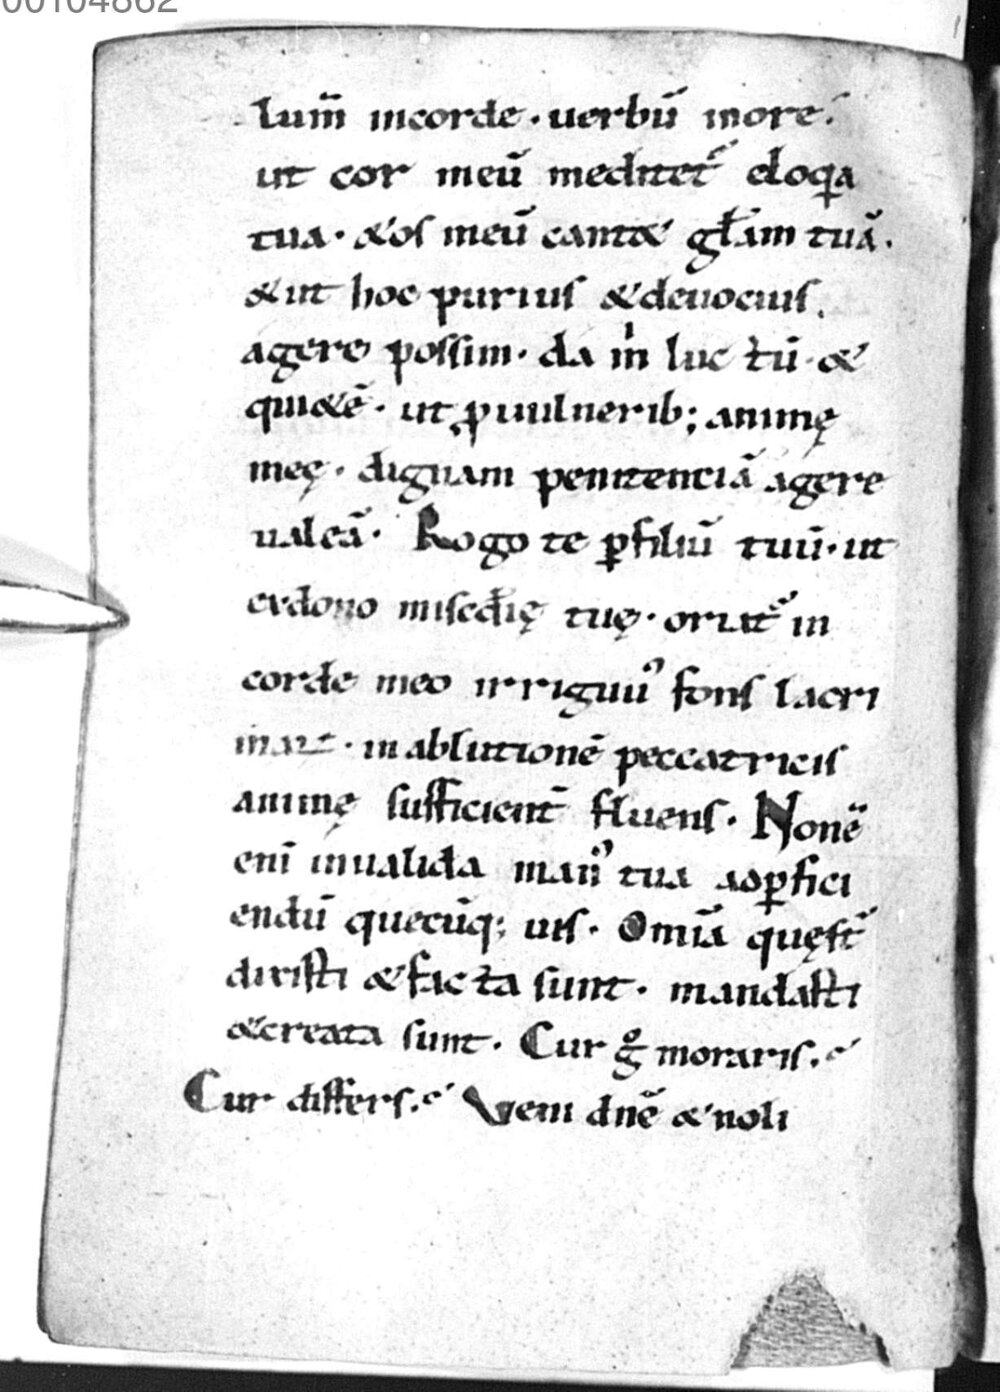 00104862
lum̄ incorde · uerbū inore ·
ut cor meū meditet᷑ eloqa
tua · &os meū cant& gl̄am tuā ·
&ut hoc purius &deuocius .
agere possim · da m̍ luc tū · &
qui&ē · ut ꝓ uulnerib; animę
meę · dignam penitenciā agere
ualeā · Rogo te ꝑfiliū tuū · ut
exdono misc̄dię tuę · oriat᷑ in
corde meo irriguuꝰ fons lacri
mar̄ · in ablutionē peccatricis
animę sufficient̄ fluens · Nonē
enī inualida manꝰ tua adꝑfici
endū quecūq; uis · Omīa quęst̄
dixisti &facta sunt · mandasti
&creata sunt · Cur gͦ moraris .
Cur differs . Veni dn̄e & noli